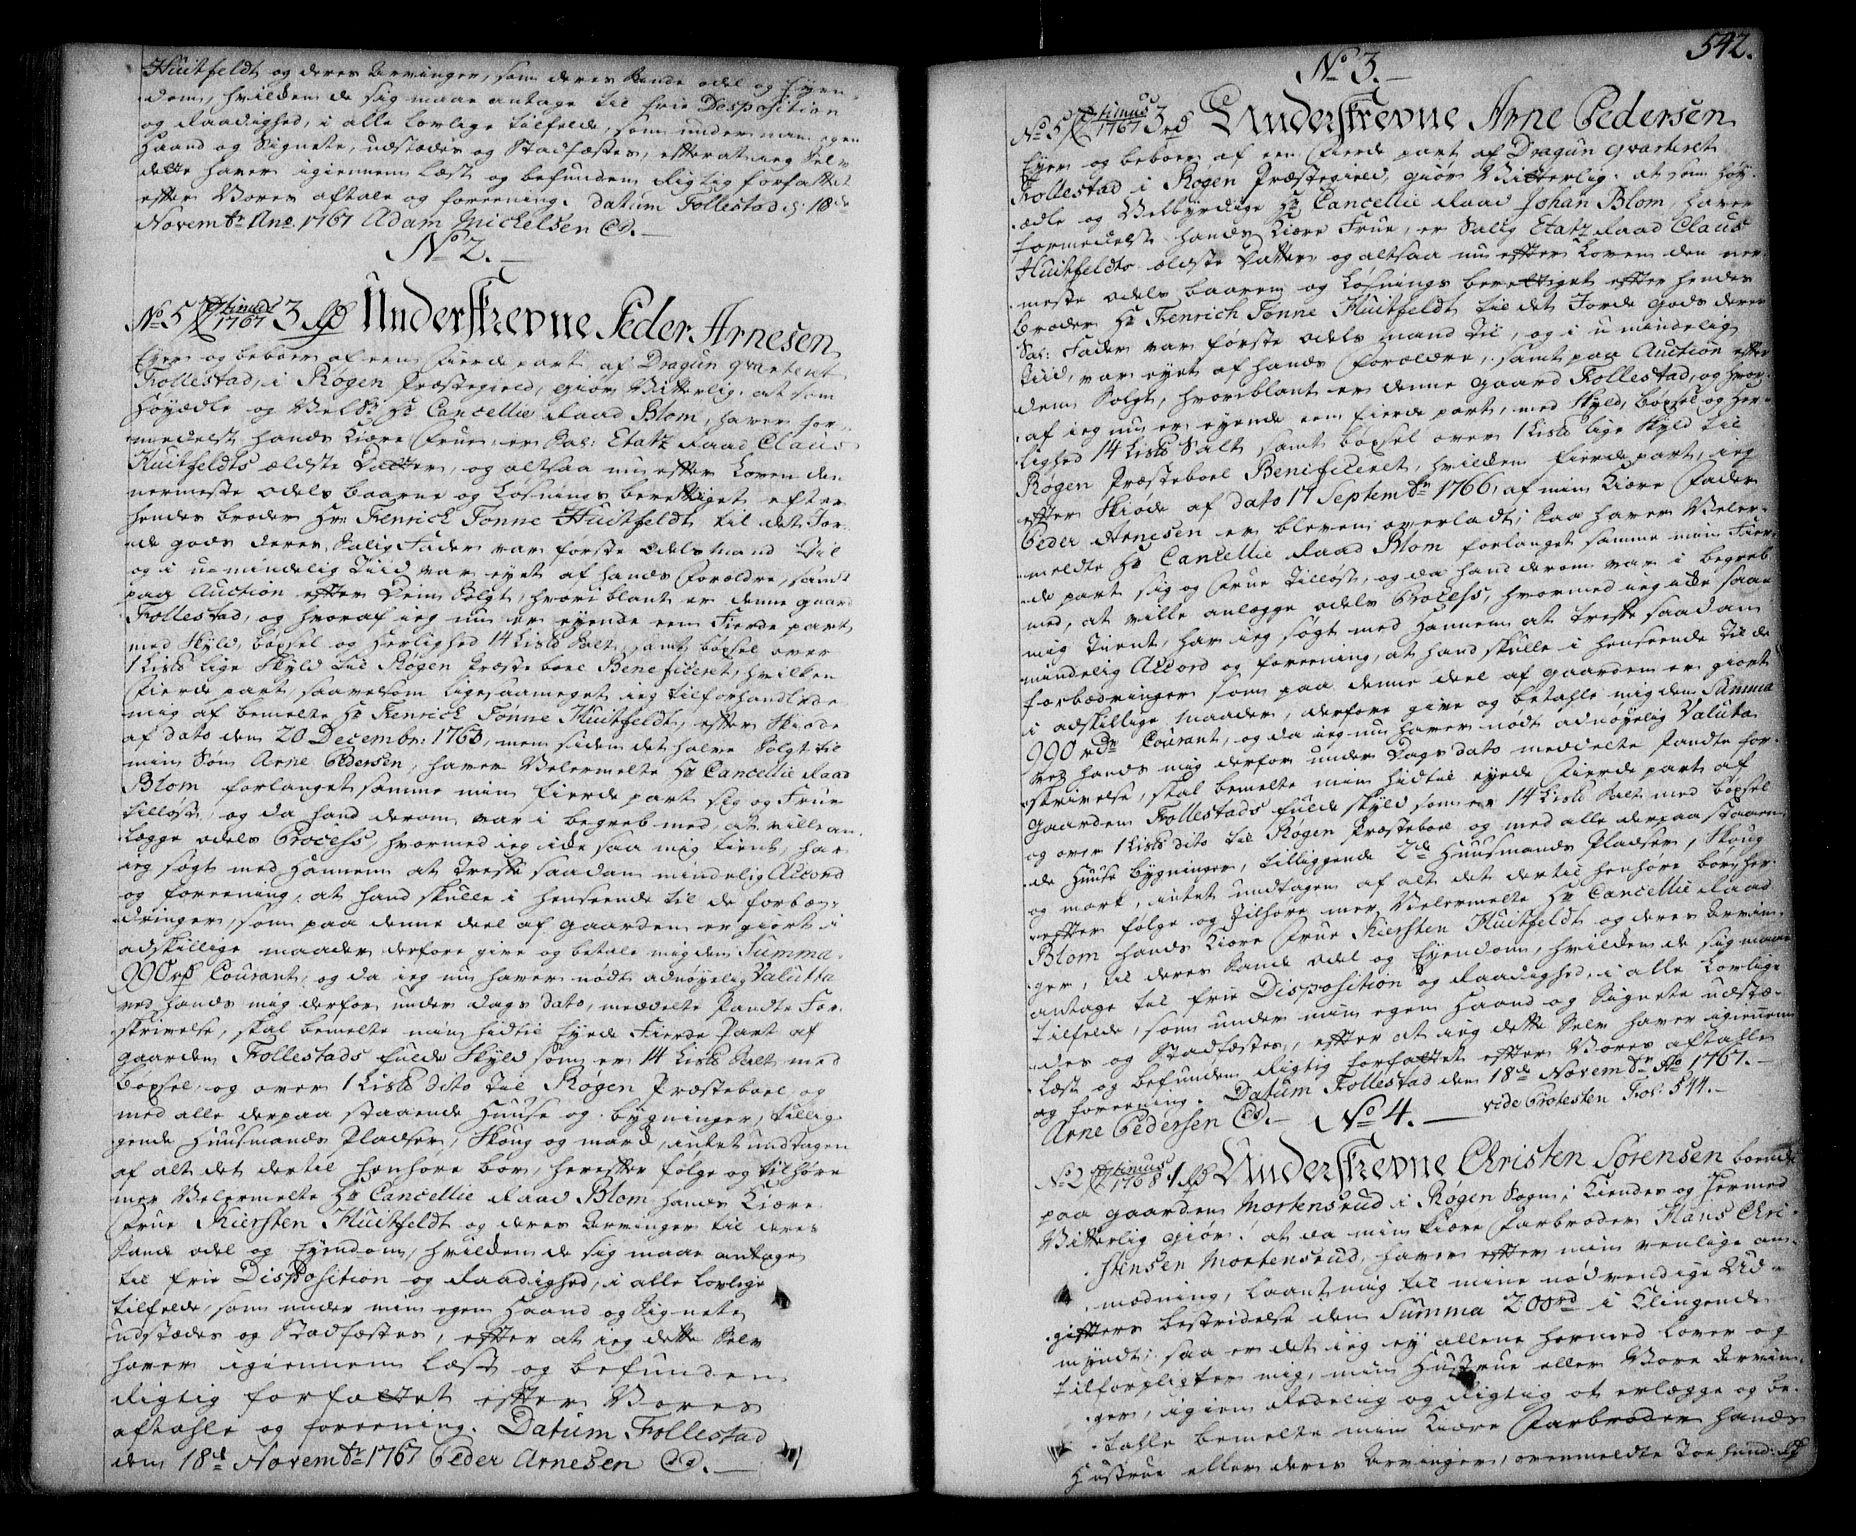 Huitfeldt og deres Arvinger, som deres Sande odel og Eyen-
dom, hvilken de sig maae antage til frie Desposition
og Raadighed, i alle Lovlige tilfelde, som under min egen
Haand og Signete, udstædes og Stadfæstes, efter at ieg Selv
dette haver igiennem læst og befunden Rigtig forfattet
efter Vores aftale og foreening. Datum Follestad d: 18de
Novembr Ano 1767 Adam Michelsen
No 2.
No 5 1767 3 Underskrevne Peder Arnesen
Eyer og beboer af een Fierde part af Dragun qvarteret
Follestad, i Røgen Præstegield, giør Vitterlig, at som
Høyædle og Velb: Hr Cancellie Raad Blom, haver for-
medelst hands Kiære Frue, er Sal: Etatz Raad Claus
Huitfeldts ældste Datter, og altsaa nu efter Loven den
nermeste odels baarne og Løsnings berettiget efter
hendes broder Hr: Henrich Tonne Huitfeldt til det Jor-
de gods deres Salig Fader var første Odels mand til
og i u-mindelig Tiid var eyet af hands Forældre, samt
paa Auction efter Dem Solgt, hvori blant er denne gaard
Follestad, og hvoraf ieg nu er eyende een Fierde part
med Skyld, böxsel og Herlighed 14 Lisd Salt, samt böxsel over
1 Lisd lige Skyld til Røgen Præste boel Beneficeret, hvilken
Fierde part, saavelsom ligesaameget ieg tilforhandlede
mig af bemelte Hr Henrich Tønne Huitfeldt, efter Skiøde
af dato den 20 Decembr: 1763, men siden det halve Solgt til
min Søn Arne Pedersen, haver Velermelte Hr Cancellie Raad
Blom forlanget samme min Fierde part sig og Frue
tilløst, og da hand derom var i begreb med, at ville an-
lægge odels Process, hvormed ieg icke saa mig tient, har
ieg søgt med Hannem at treffe saadan mindelig Accord
og foreening, at hand skulle i henseende til de forbæ-
dringer, som paa denne deel af gaarden er giort i
adskillige maader derfore give og betale mig den Summa
990 rd Courant, og da ieg nu haver nødt adnøyelig Valutta
ved hands mig derfor under Dags dato, meddelte Pandte For-
skrivelse, skal bemelte min hidtil Eyede Fierde Part af
gaarden Follestads fulde Skyld som er 14 Lisd Salt med
böxsel, og over 1 Lisd dito til Røgen Præsteboel og
med alle derpaa staaende Huuse og bygninger, tillig-
gende Huusmands Pladser, Skoug og mark, intet undtagen
af alt det dertil henhøre bør, herefter følge og tilhøre
mer Velermelte Hr Cancellie Raad Blom hands Kiære
Frue Kiersten Huitfeldt og deres Arvinger til deres
Sande odel og Eyendom, hvilken de sig maae antage
til frie Disposition og Raadighed, i alle Lovlige
tilfelde, som under min egen Haand og Signete
udstædes og Stadfæstes, efter at ieg dette Selv
haver igiennem læst og befunden
Rigtig forfattet efter Vores
aftahle og foreening. Datum Follestad
den 18de Novembr 1767 Peder Arnesen
542.
No 3.
No 5 1767 3 Underskrevne Arne Pedersen
Eyer og beboer af een Fierde part af Dragun qvarteret
Follestad i Røgen Præstegield, giør Vitterlig. at som høy-
ædle og Velbyrdige Hr Cancellie Raad Johan Blom, haver
formedelst hands Kiære Frue, er Salig Etatz Raad Claus
Huitfeldts ældste Datter og altsaa nu efter Loven den ner-
meste odels baaren og Løsnings berettiget efter hendes
broder Hr Henrich Tonne Huitfeldt til det Jorde gods deres
Sal: Fader var første odels mand til, og i u-mindelig
tiid, var eyet af hands Forældre, samt paa Auction efter
dem Solgt, hvoriblant er denne gaard Follestad, og hvor-
af ieg nu er eyende een Fierde part, med Skyld, böxsel og Her-
lighed 14 Lisd Salt, samt böxsel over 1 Lisd lige Skyld til
Røgen Præsteboel Beneficeret, hvilken Fierde part, ieg
efter Skiøde af dato 17 Septembr 1766, af min Kiære Fader
Peder Arnesen er bleven overladt; Saa haver Veler-
meldte Hr Cancellie Raad Blom forlanget samme min Fier-
de part sig og Frue tilløst, og da hand derom var i begreb
med, at ville anlægge odels Process, hvormed ieg icke saae
mig tient, har ieg søgt med Hannem at treffe saadan
mindelig Accord og foreening, at hand skulle i henseende til de
forbædringer som paa denne deel af gaarden er giort
i adskillige maader, derfore give og betahle mig den Summa
990 rdr Courant, og da ieg nu haver nødt adnøyelig Valuta
ved hands mig derfor under Dags dato meddelte Pandte for-
skrivelse, skal bemelte min hidtil eyede Fierde part af
gaarden Follestads fulde Skyld som er 14 Lisd Salt med böxsel
og over 1 Lisd dito til Røgen Præsteboel og med alle derpaa staaen-
de Huuse bygninger, tilliggende 2de Huusmands Pladser, Skoug
og mark, intet undtagen af alt det dertil henhøre bør, her-
efter følge og tilhøre mer Velermelte Hr Cancellie Raad
Blom hands Kiære Frue Kiersten Huitfeldt og deres Arvin-
ger, til deres Sande odel og Eyendom, hvilken de sig maae
antage til frie Disposition og Raadighed, i alle Lovlige
tilfelde, som under min egen Haand og Signete udstæ-
des og Stadfæstes, efter at ieg dette Selv haver igiennem
læst og befunden Rigtig forfattet efter Vores aftahle
og foreening. Datum Follestad den 18de Novembr Ao 1767.
Arne Pedersen
vide Protesten Fol: 544.
No 4.
No 2 1768 1 Underskrevne Christen Sørensen boende
paa gaarden Mortensrud i Røgen Sogn; Kiendes og hermed
Vitterlig giør. at da min Kiære Farbroder Hans Chri-
stensen Mortensrud, haver efter min venlige an-
modning, laant mig til mine nødvendige Ud-
gifters bestridelse den Summa 200 rd i Klingende
myndt; saa er det ieg ey allene hermed lover og
tilforpligter mig, min Hustrue eller Vore Arvin-
ger, igien Redelig og Rigtig at erlægge og be-
tahle bemelte min Kiære Farbroder hands
Hustrue eller deres Arvinger, ovenmeldte Toe hund: rd